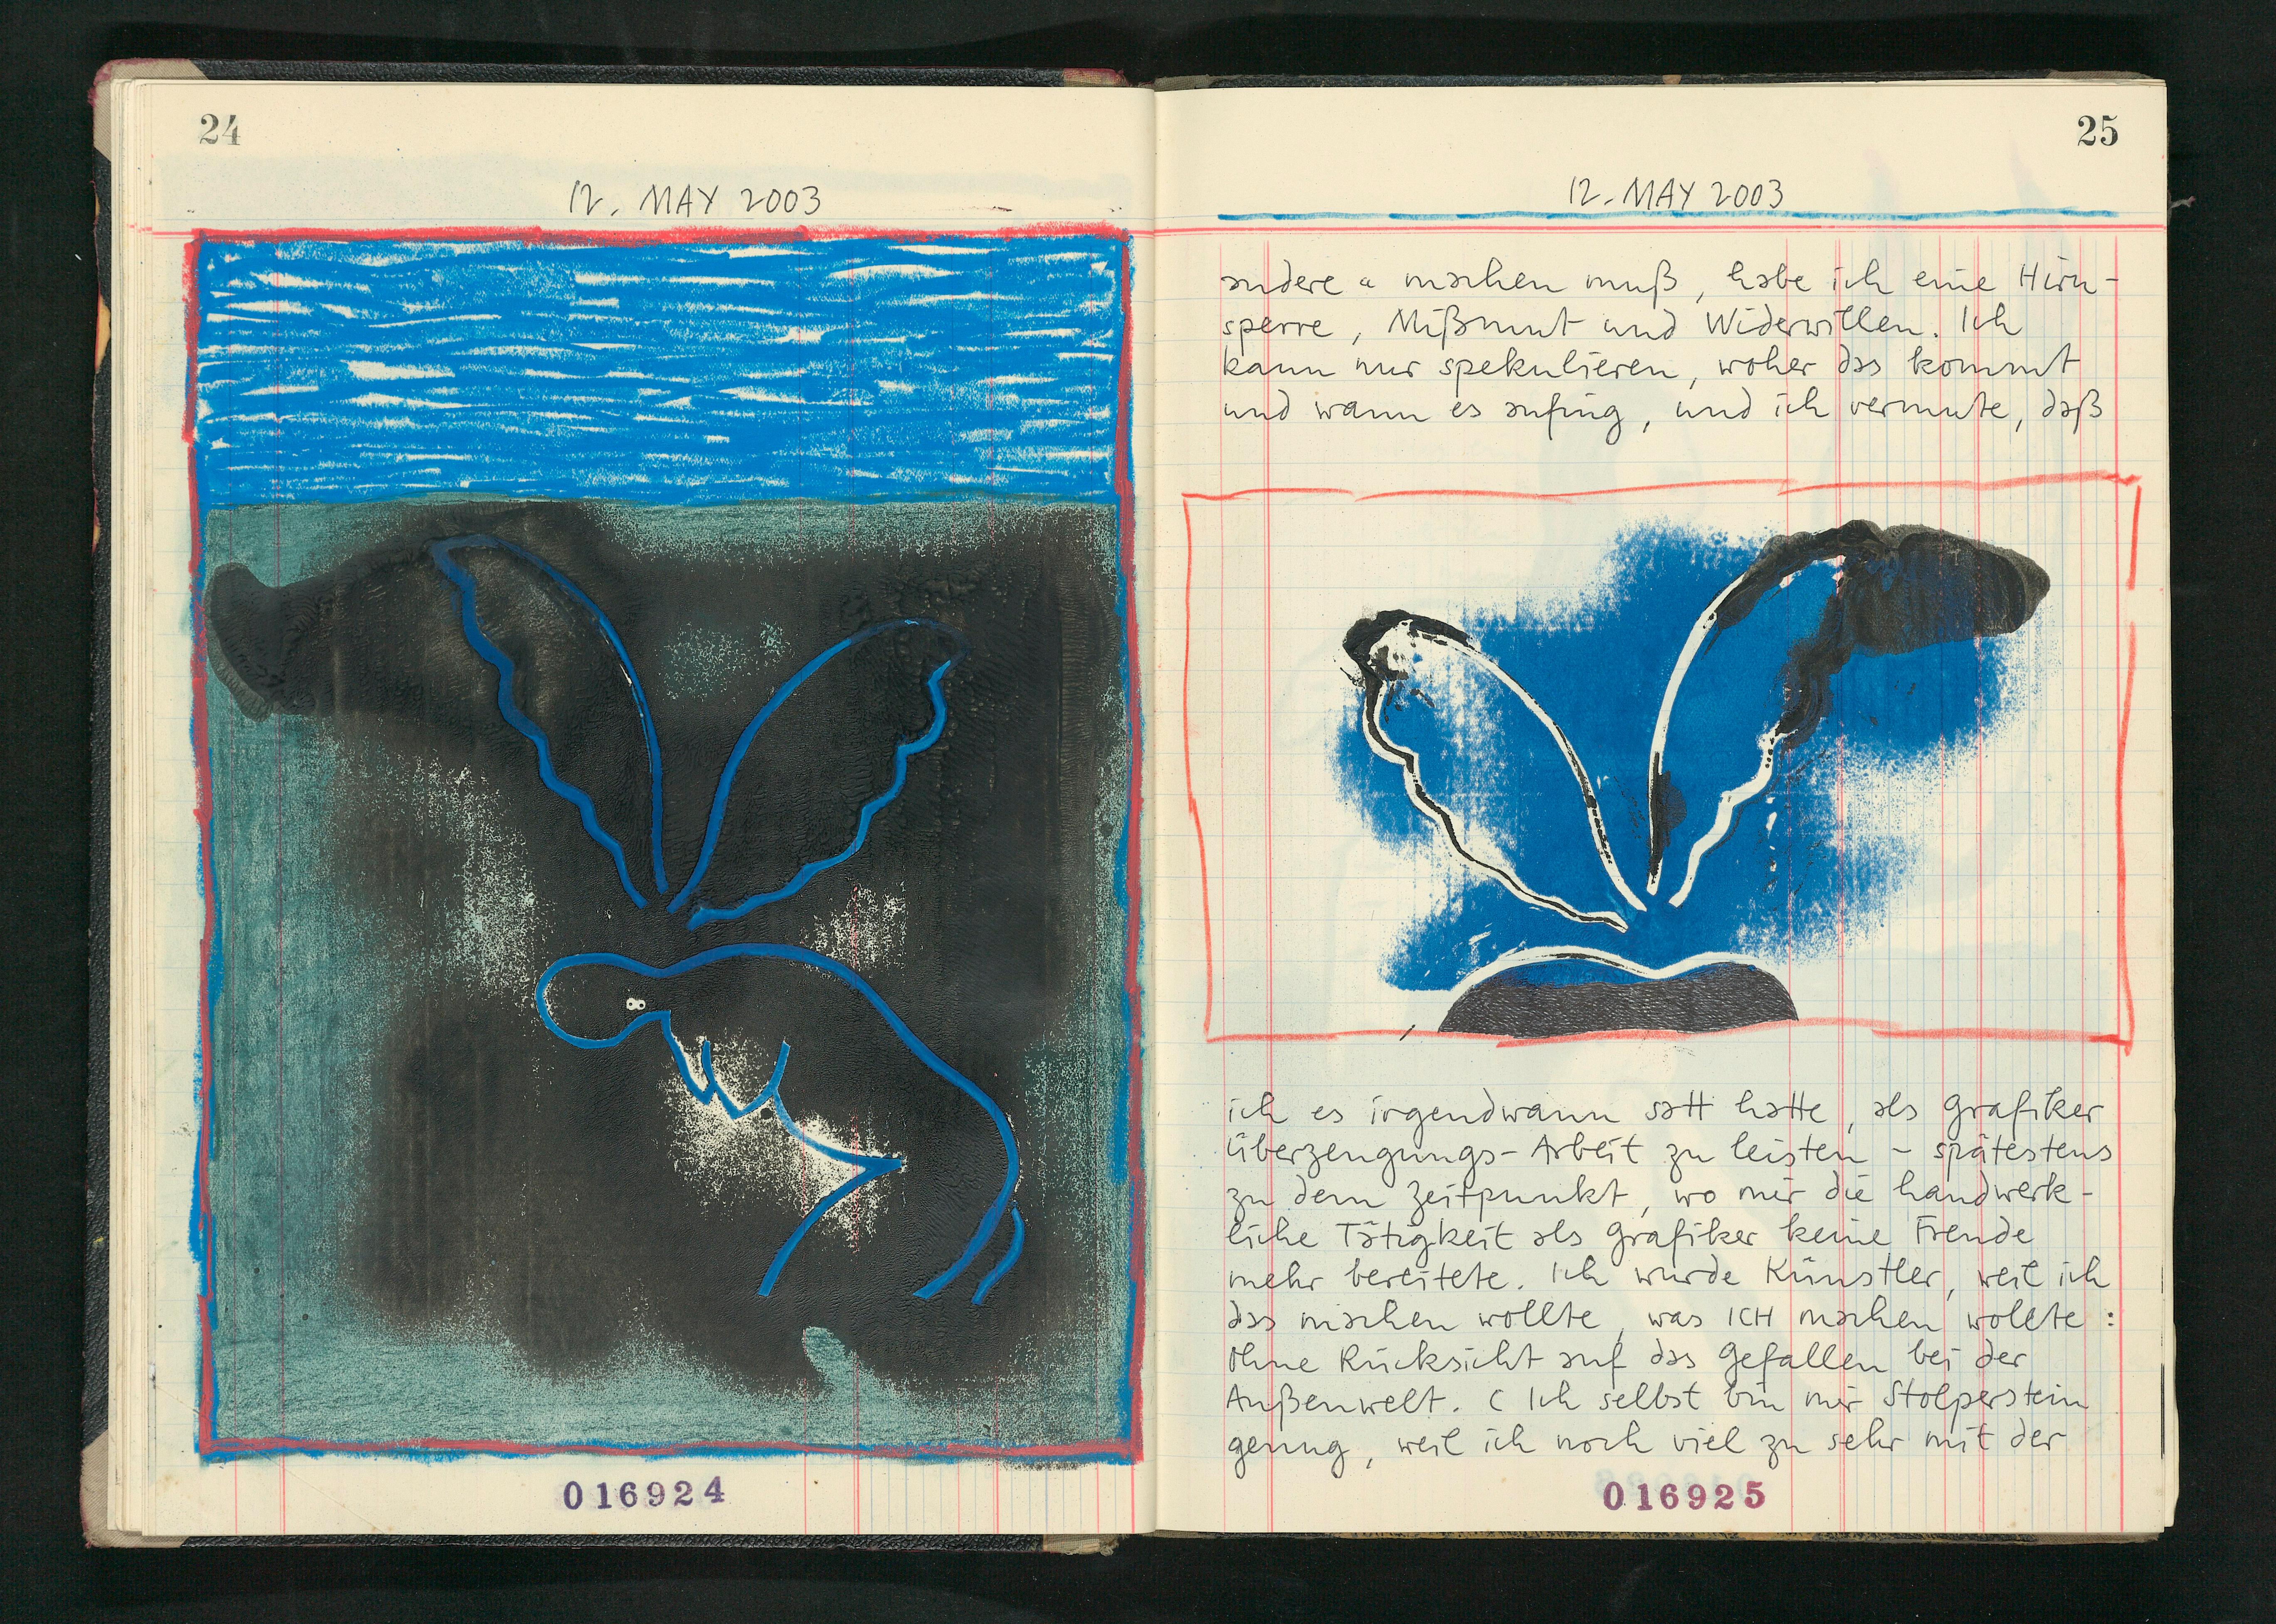 24
12. MAY 2003
016924
25
12. MAY 2003
andere " machen muß, habe ich eine Hirn-
sperre, Mißmut und Widerwillen. Ich
kann nur spekulieren, woher das kommt
und wann es anfing, und ich vermute, daß
ich es irgendwann satt hatte, als Grafiker
Überzeugungs-Arbeit zu leisten - spätestens
zu dem Zeitpunkt, wo mir die handwerk-
liche Tätigkeit als Grafiker keine Freude
mehr bereitete. Ich wurde Künstler, weil ich
das machen wollte, was ICH machen wollte:
Ohne Rücksicht auf das Gefallen bei der
Außenwelt. ( Ich selbst bin mir Stolperstein
genug, weil ich noch viel zu sehr mit der
016925